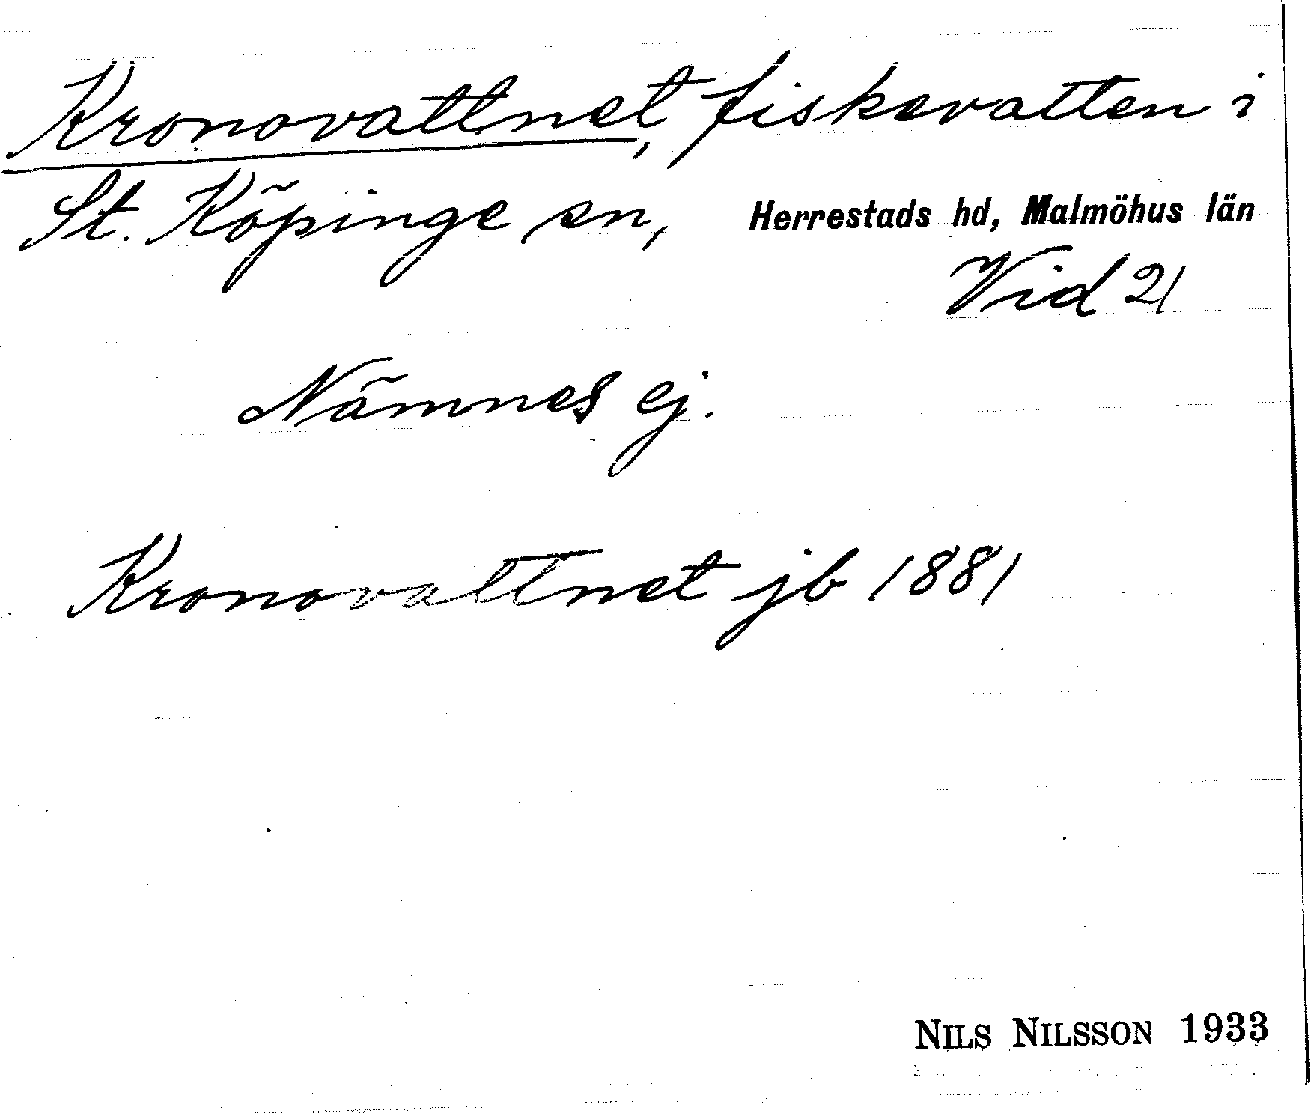 Kronovattnet, fiskevatten i
St. Köpinge sn, Herrestads hd, Malmöhus län
Vid 21
Nämnes ej.
Kronovattnet jb 1881
NILS NILSSON 1933